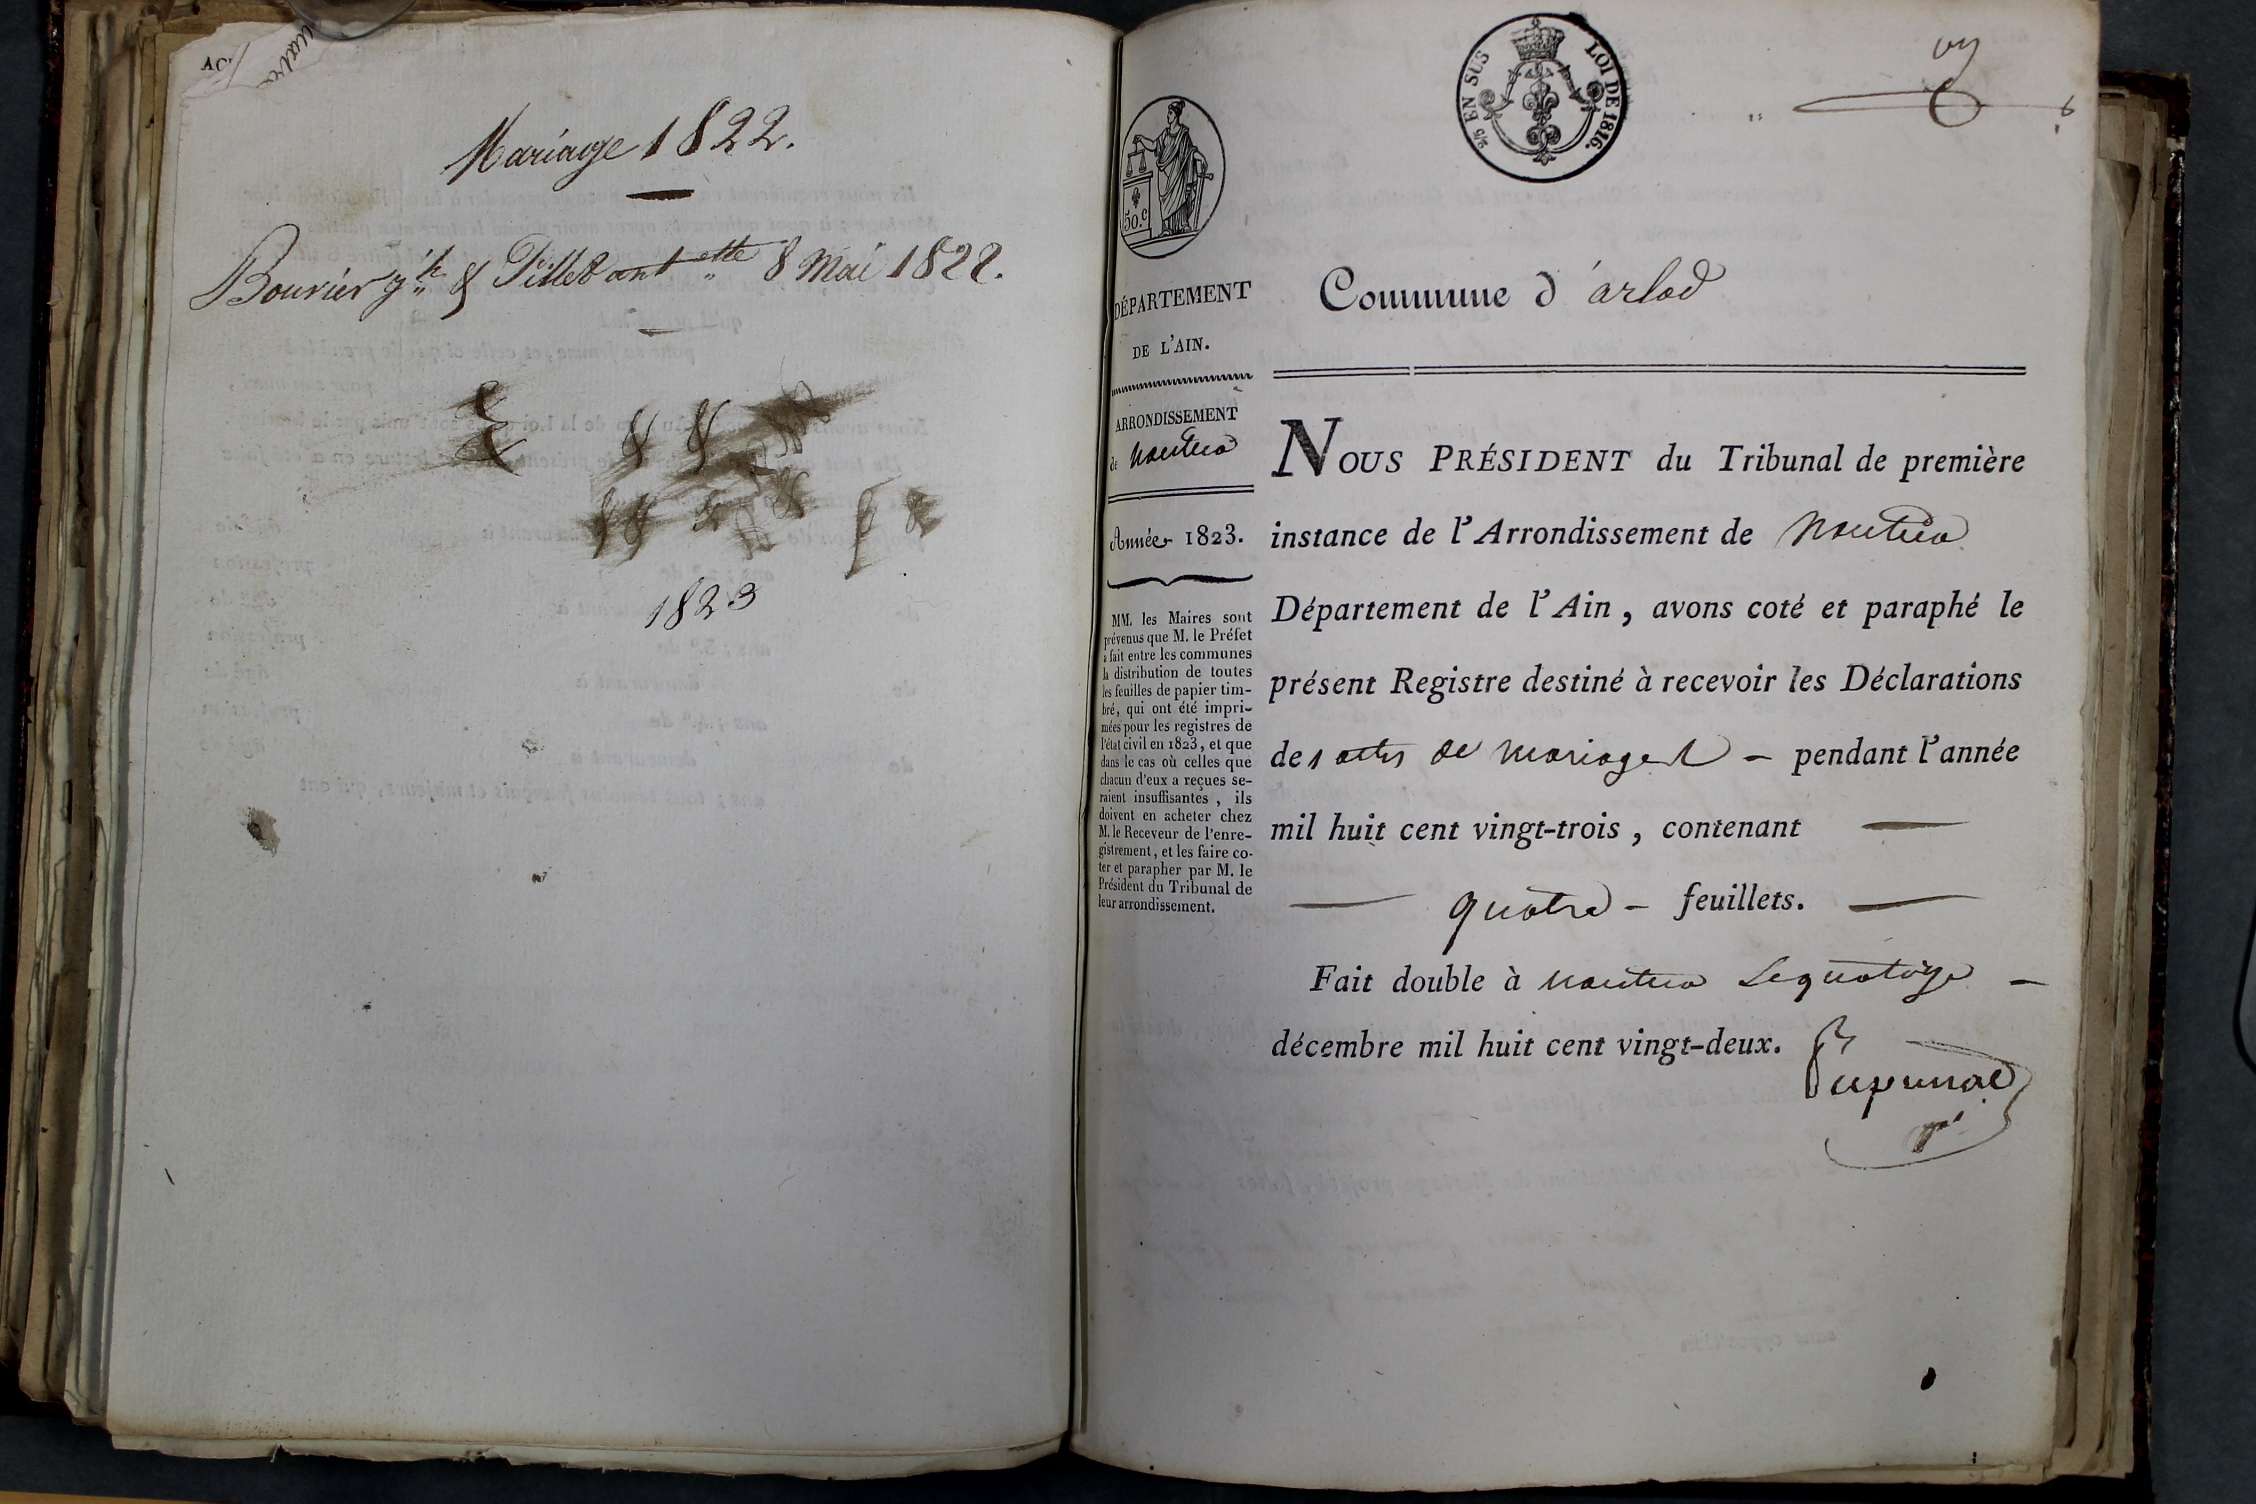 AC
Mariage 1822.
Bouvier & Pillet antette 8 Mai 1822.
1823
2/5 EN SUS LOI DE 1816.
50.c
DÉPARTEMENT
DE L'AIN.
ARRONDISSEMENT
de Nantua
Année 1823.
MM. les Maires sont
prévenus que M. le Préfet
a fait entre les communes
la distribution de toutes
les feuilles de papier tim-
bré, qui ont été impri-
mées pour les registres de
l'état civil en 1823, et que
dans le cas où celles que
chacun d'eux a reçues se-
raient insuffisantes, ils
doivent en acheter chez
M. le Receveur de l'enre-
gistrement, et les faire co-
ter et parapher par M. le
Président du Tribunal de
leur arrondissement.
Commune d'arlod
NOUS PRÉSIDENT du Tribunal de première
instance de l'Arrondissement de Nantua
Département de l'Ain, avons coté et paraphé le
présent Registre destiné à recevoir les Déclarations
des actes de mariages - pendant l'année
mil huit cent vingt-trois, contenant
quatre - feuillets.
Fait double à nantua Le quatorze -
décembre mil huit cent vingt-deux.